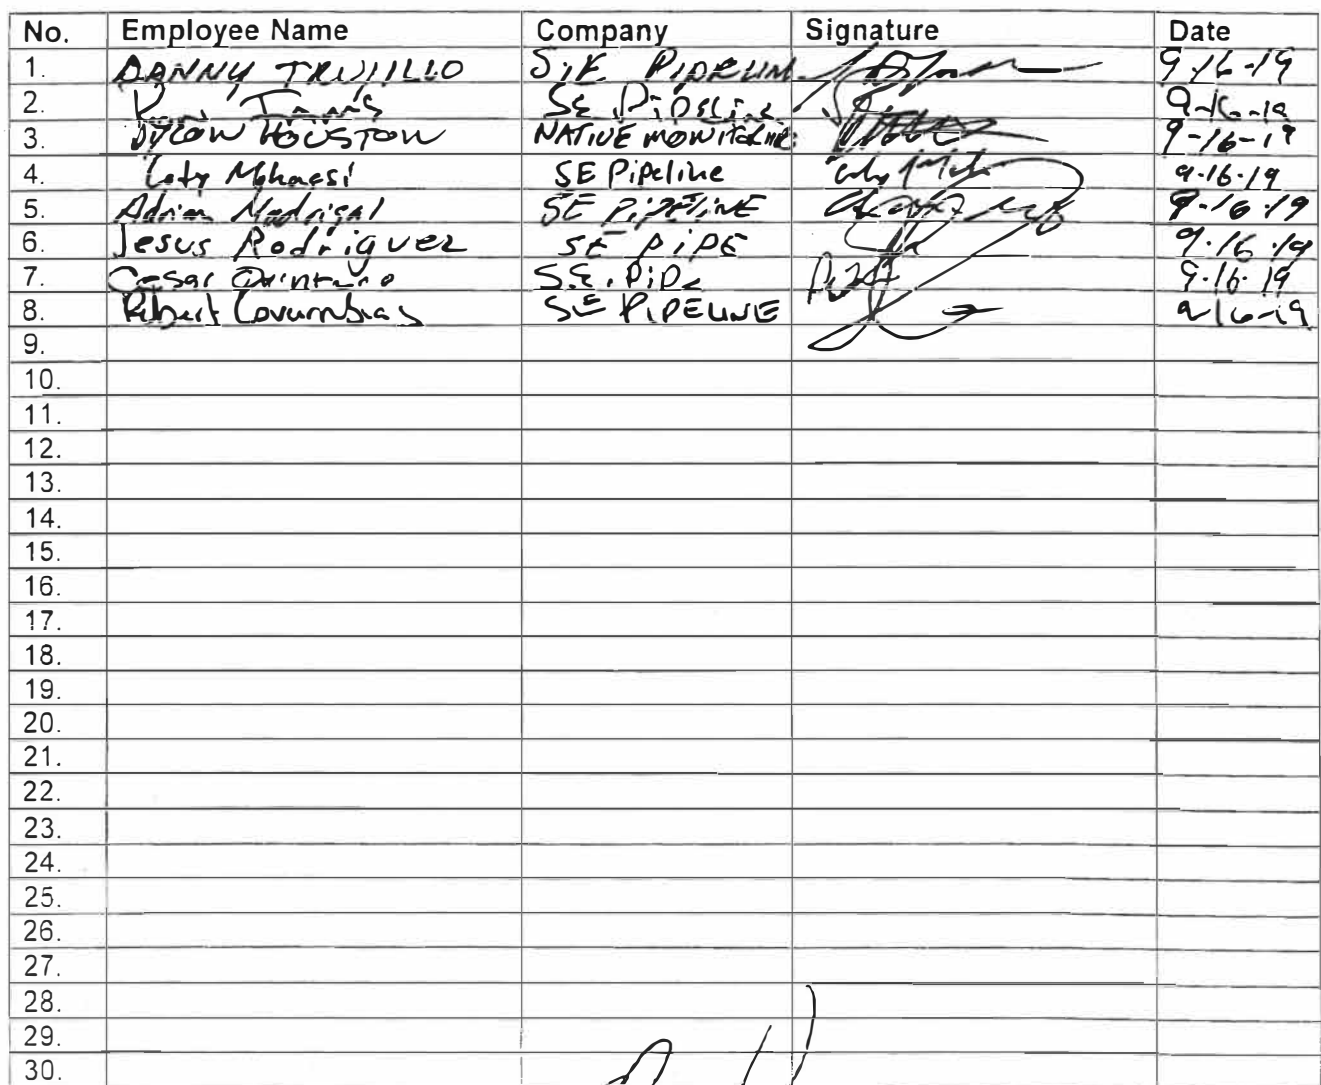 No. Employee Name Company Signature Date
1. DANNY TRUJILLO S.E. PIPELINE 9-16-19
2. SE Pipeline 9-16-19
3. DYLON HOUSTON NATIVE MONITORING 9-16-19
4. Coty SE Pipeline 9-16-19
5. Adrian Madrigal SE PIPELINE 9-16-19
6. Jesus Rodriguez SE PIPE 9-16-19
7. Cesar Quintero S.E. Pipe 9-16-19
8. Robert Covarrubias SE PIPELINE 9-16-19
9.
10.
11.
12.
13.
14.
15.
16.
17.
18.
19.
20.
21.
22.
23.
24.
25.
26.
27.
28.
29.
30.